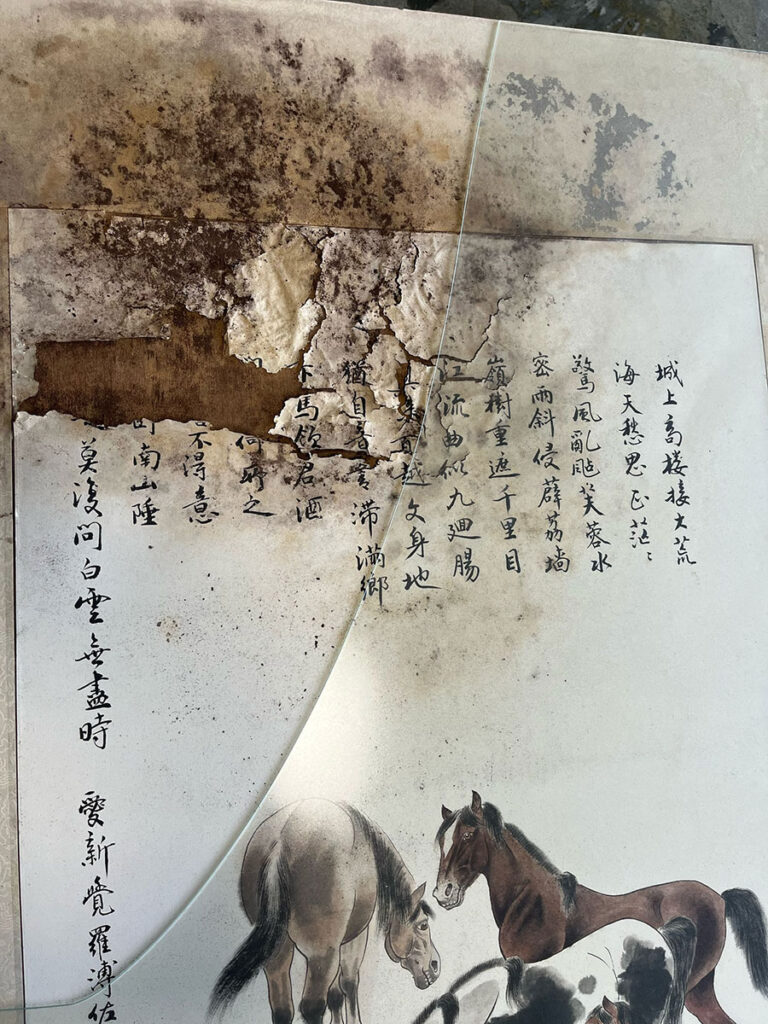 城上高楼接大荒
海天愁思正茫〻
驚風亂颭芙蓉水
密雨斜侵薜荔墙
嶺樹重遮千里目
江流曲似九廻腸
百越文身地
猶自音書滯滿鄉
下馬飲君酒
何所之
不得意
南山陲
莫復問白雲無盡時 愛新覺羅溥佐